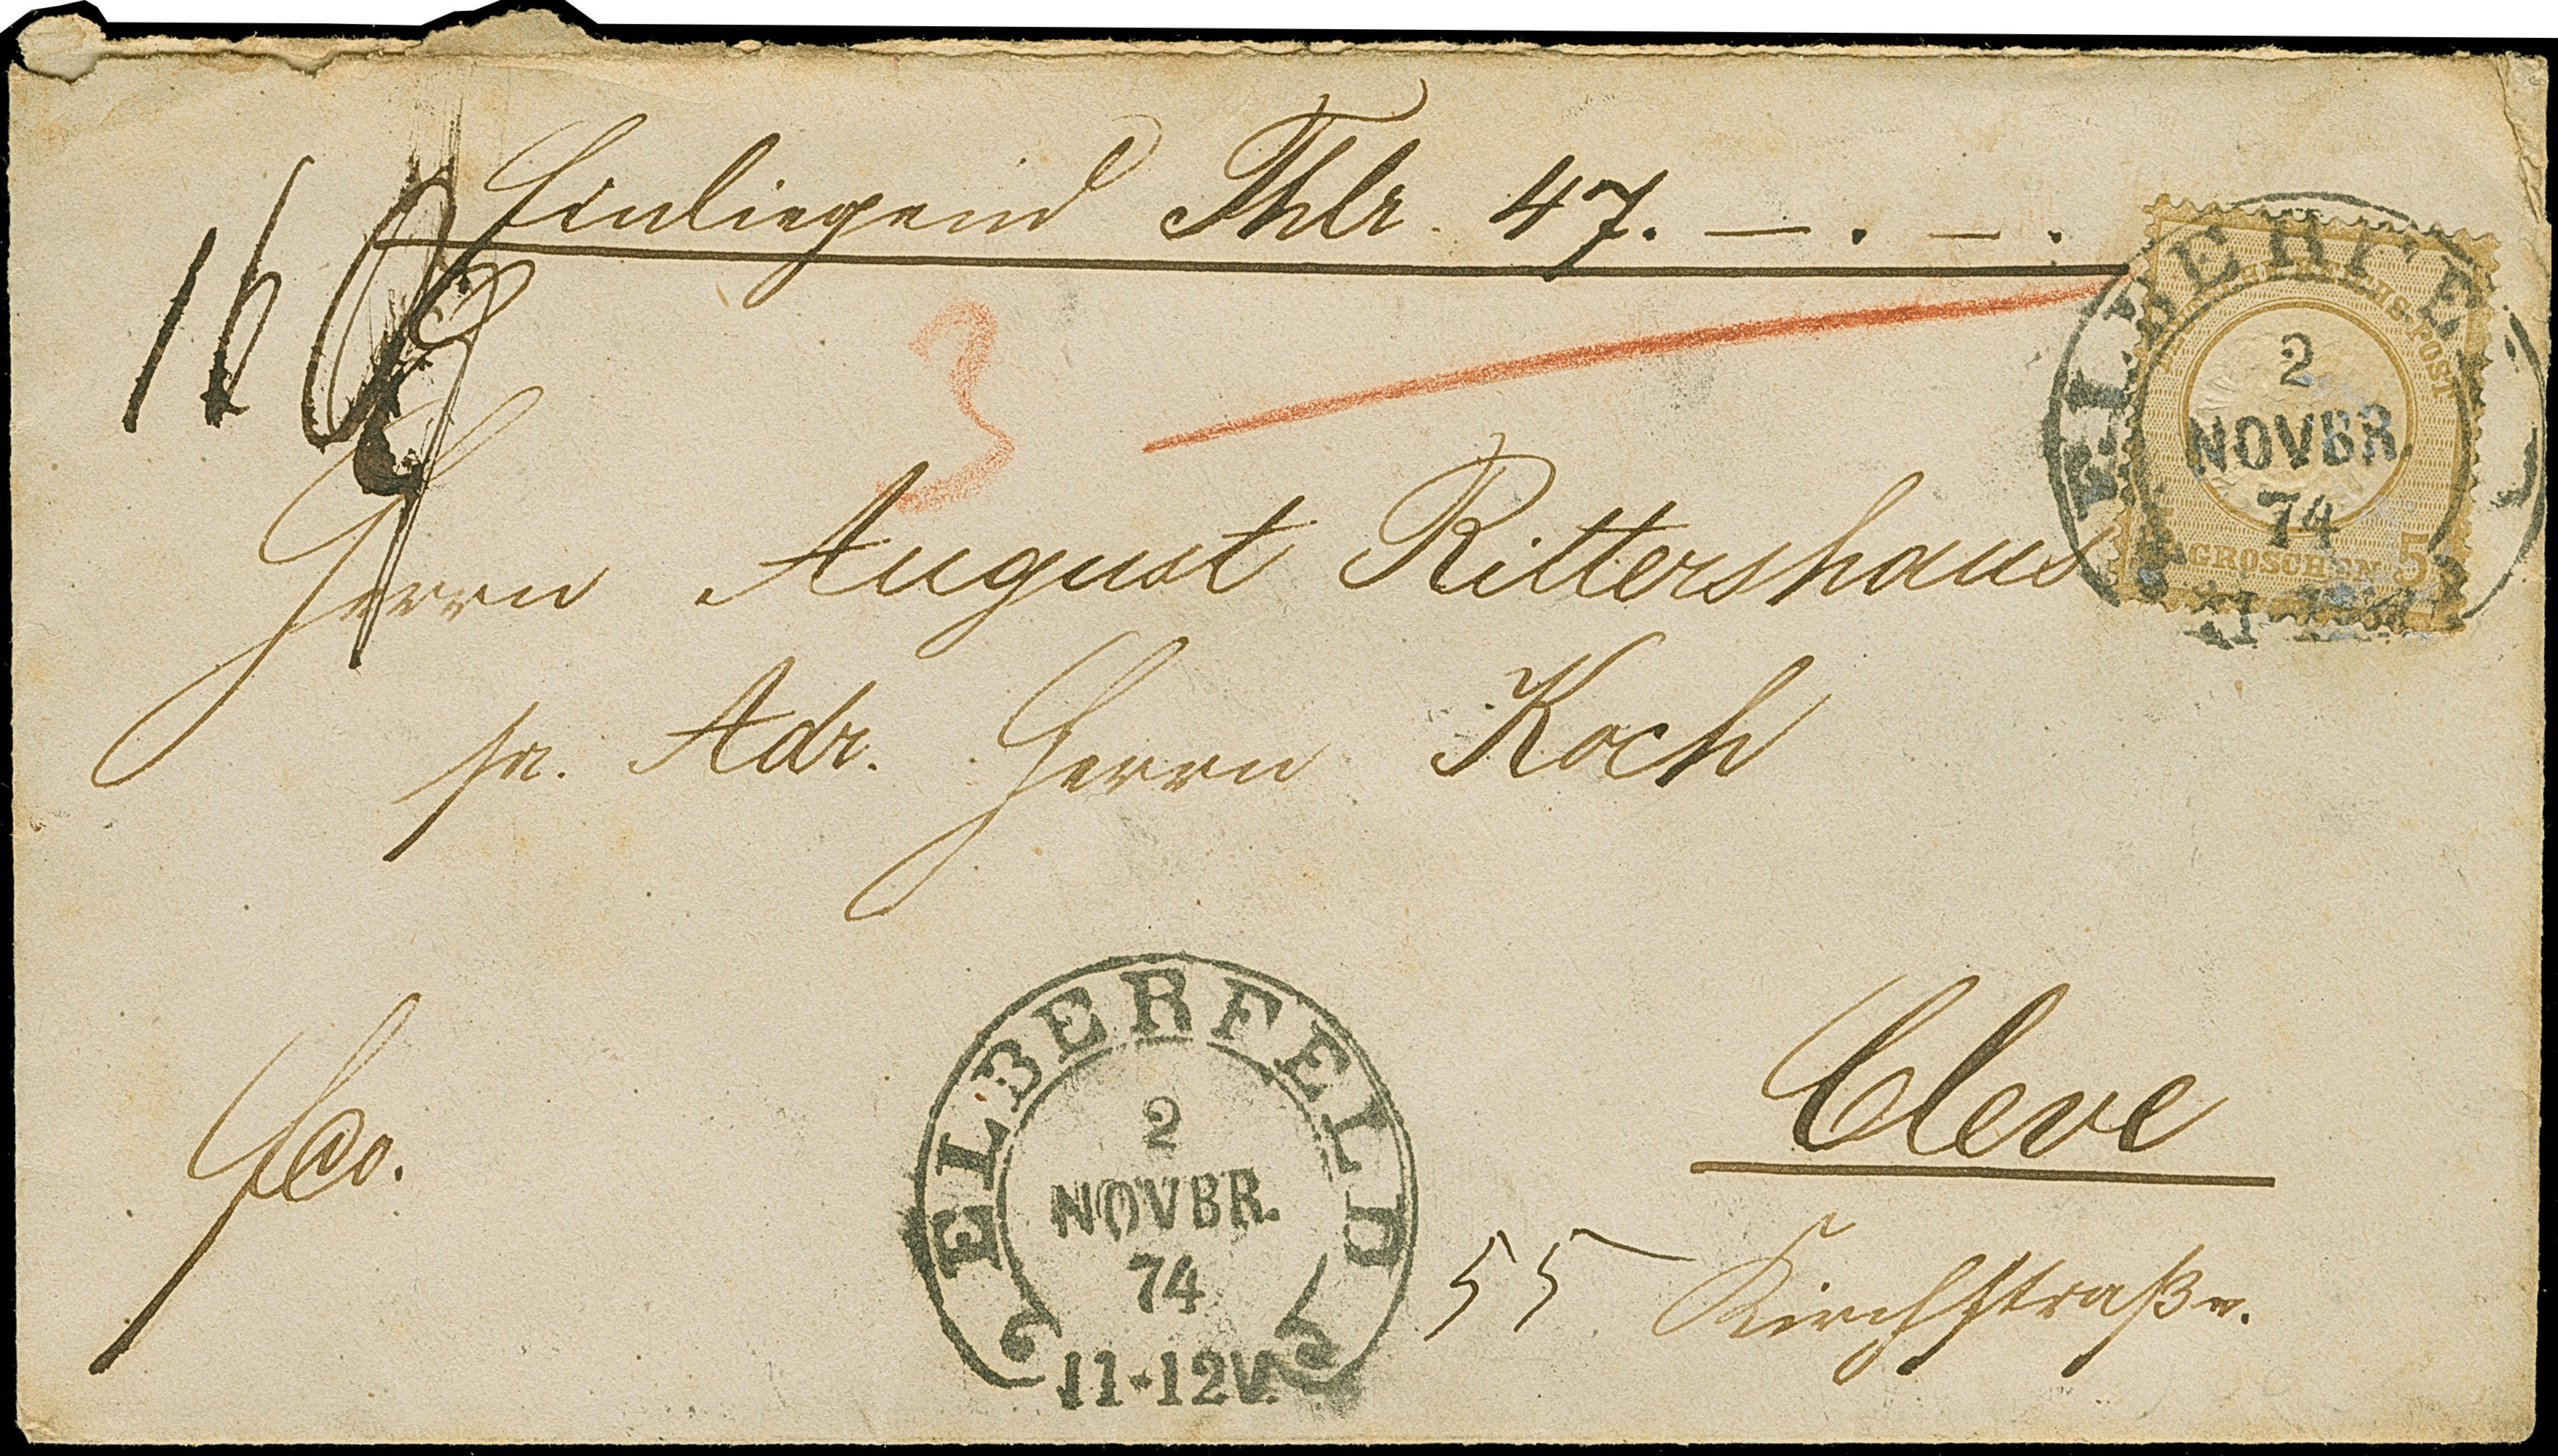 Einliegend Thlr. 47. — . — .
3
Herrn August Rittershaus
pr. Adr. Herrn Koch
Cleve
55 Kirchstraße.
fco.
ELBERFELD
2
NOVBR.
74
11-12V.
ELBERFE
2
NOVBR.
74
REICHS-POST
GROSCHEN 5